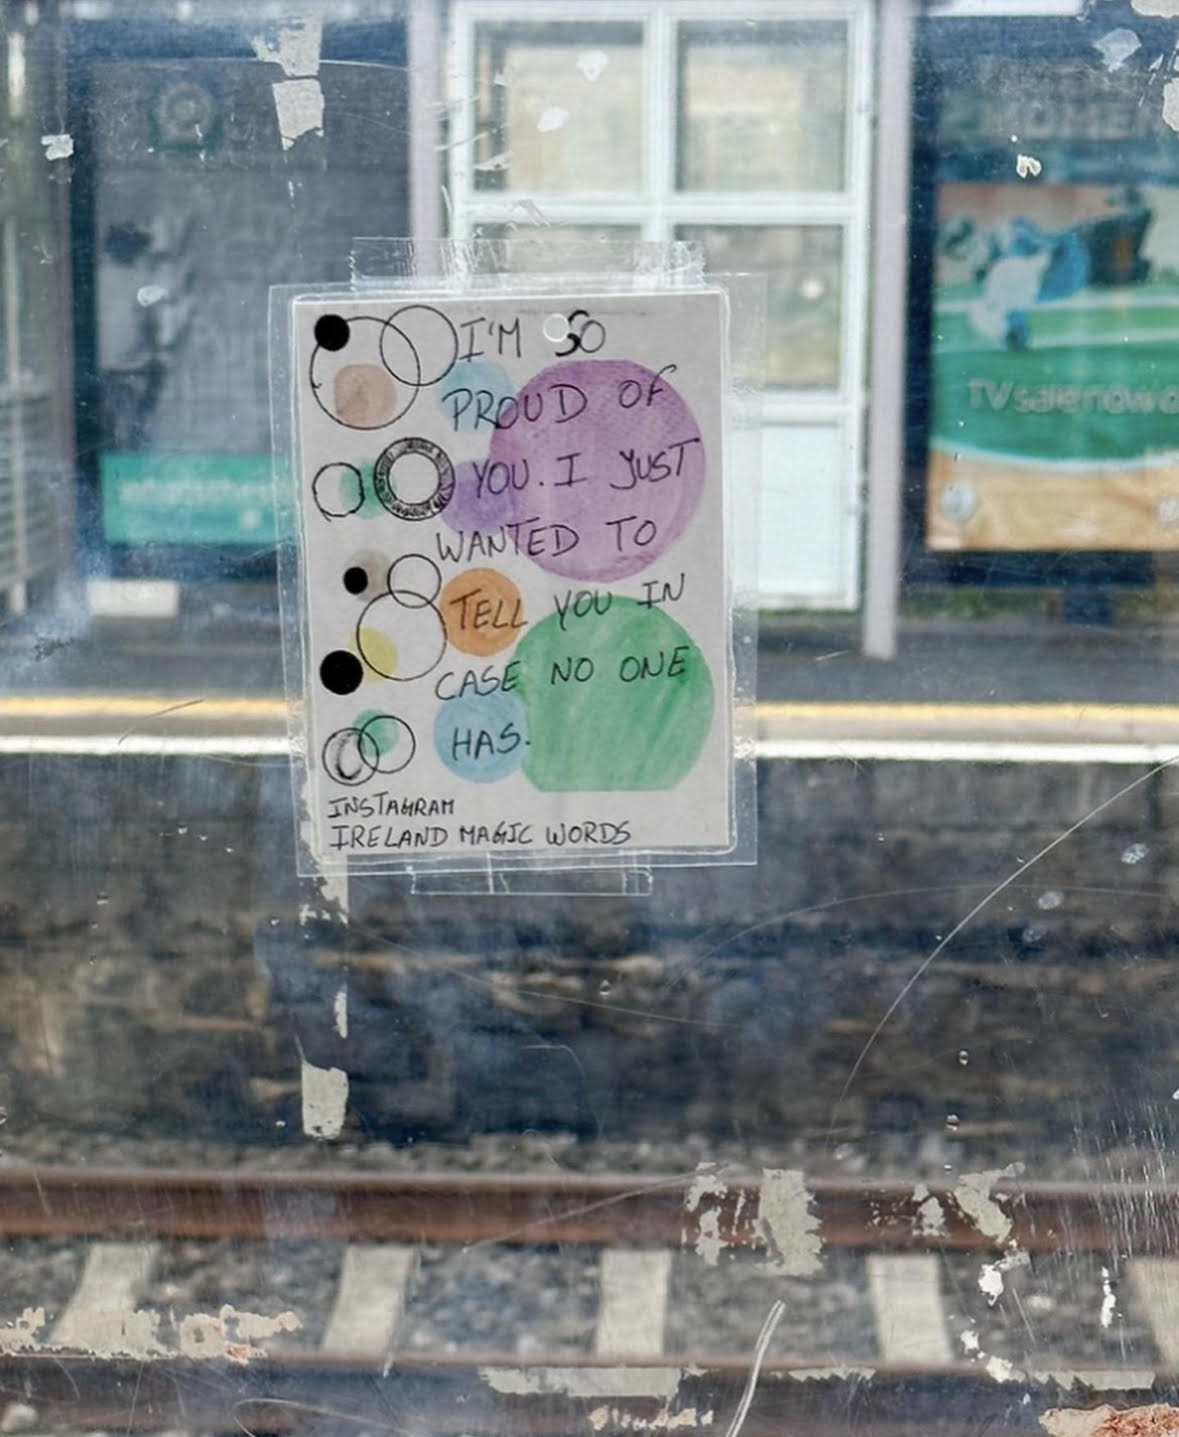 I'M SO
PROUD OF
YOU. I JUST
WANTED TO
TELL YOU IN
CASE NO ONE
HAS.
INSTAGRAM
IRELAND MAGIC WORDS
TV sale now o